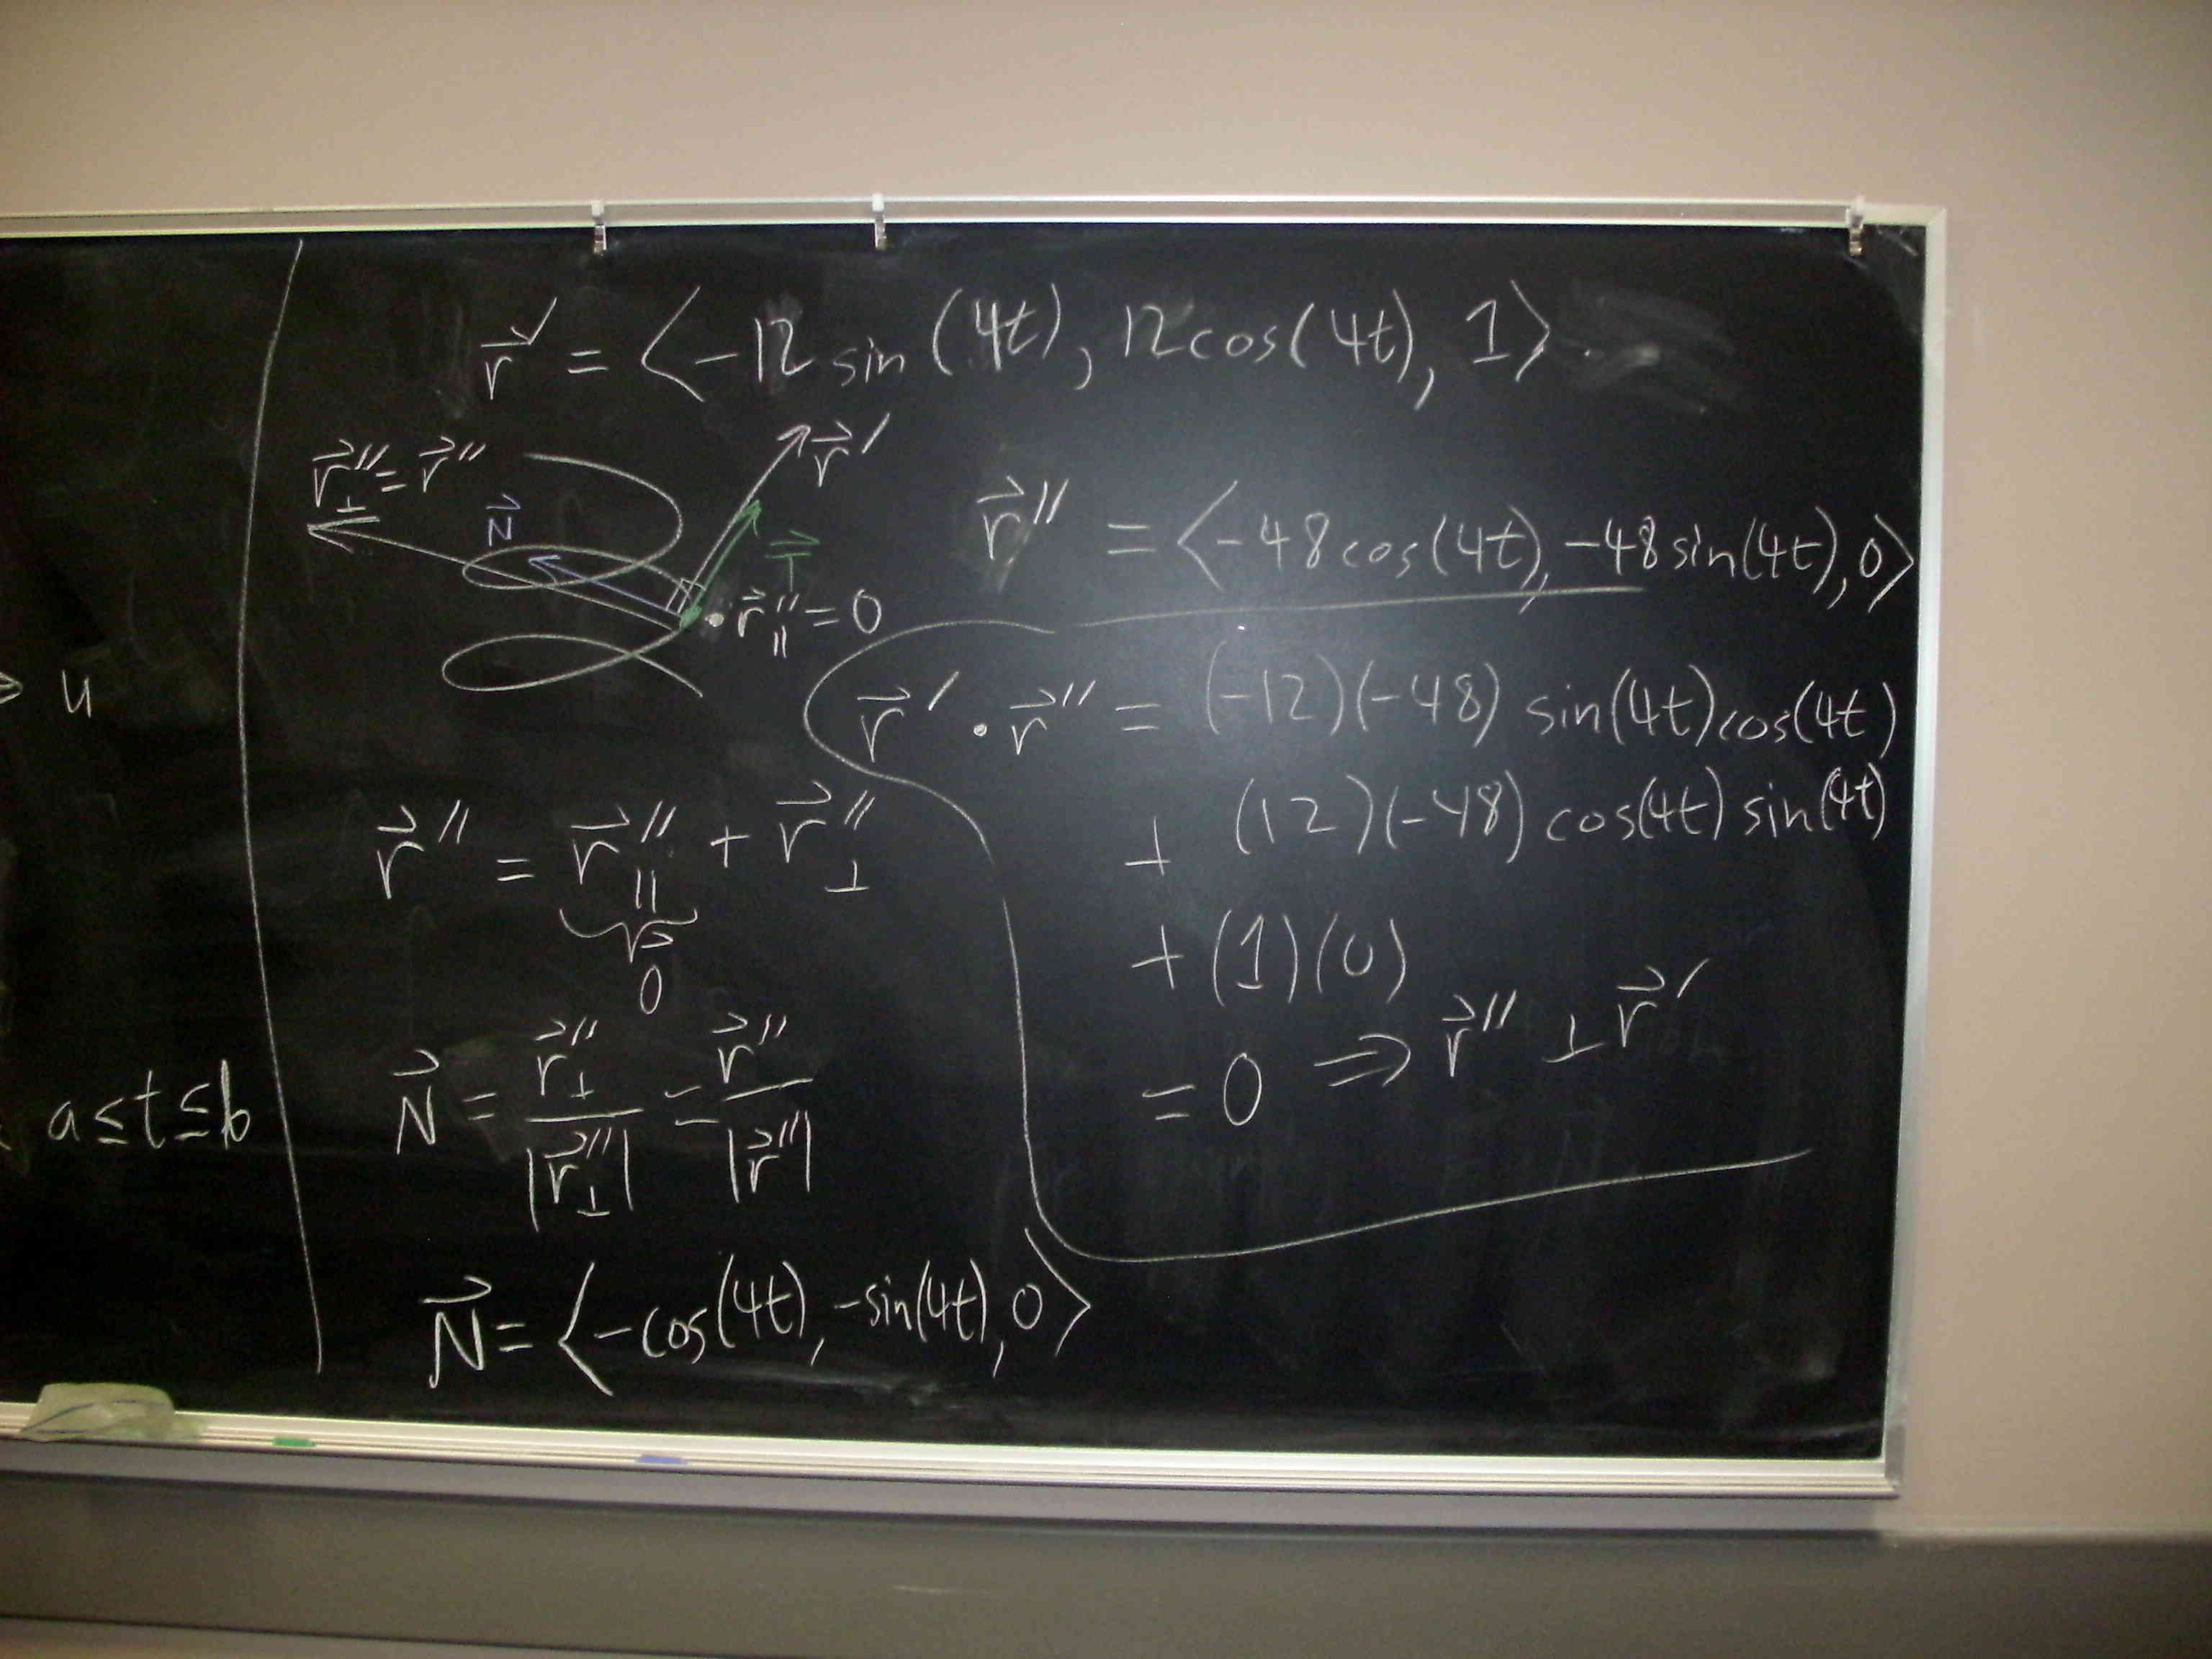 u
a≤t≤b
r⃗′ = ⟨-12 sin(4t), 12cos(4t), 1⟩.
r⃗″⊥ = r⃗″
r⃗′
N⃗
T⃗
r⃗″∥ = 0
r⃗″ = ⟨-48cos(4t), -48sin(4t), 0⟩
r⃗′ · r⃗″ = (-12)(-48) sin(4t)cos(4t)
+ (12)(-48) cos(4t) sin(4t)
+ (1)(0)
= 0 ⇒ r⃗″ ⊥ r⃗′
r⃗″ = r⃗″∥ + r⃗″⊥
0⃗
N⃗ = r⃗″⊥ / |r⃗″⊥| = r⃗″ / |r⃗″|
N⃗ = ⟨-cos(4t), -sin(4t), 0⟩